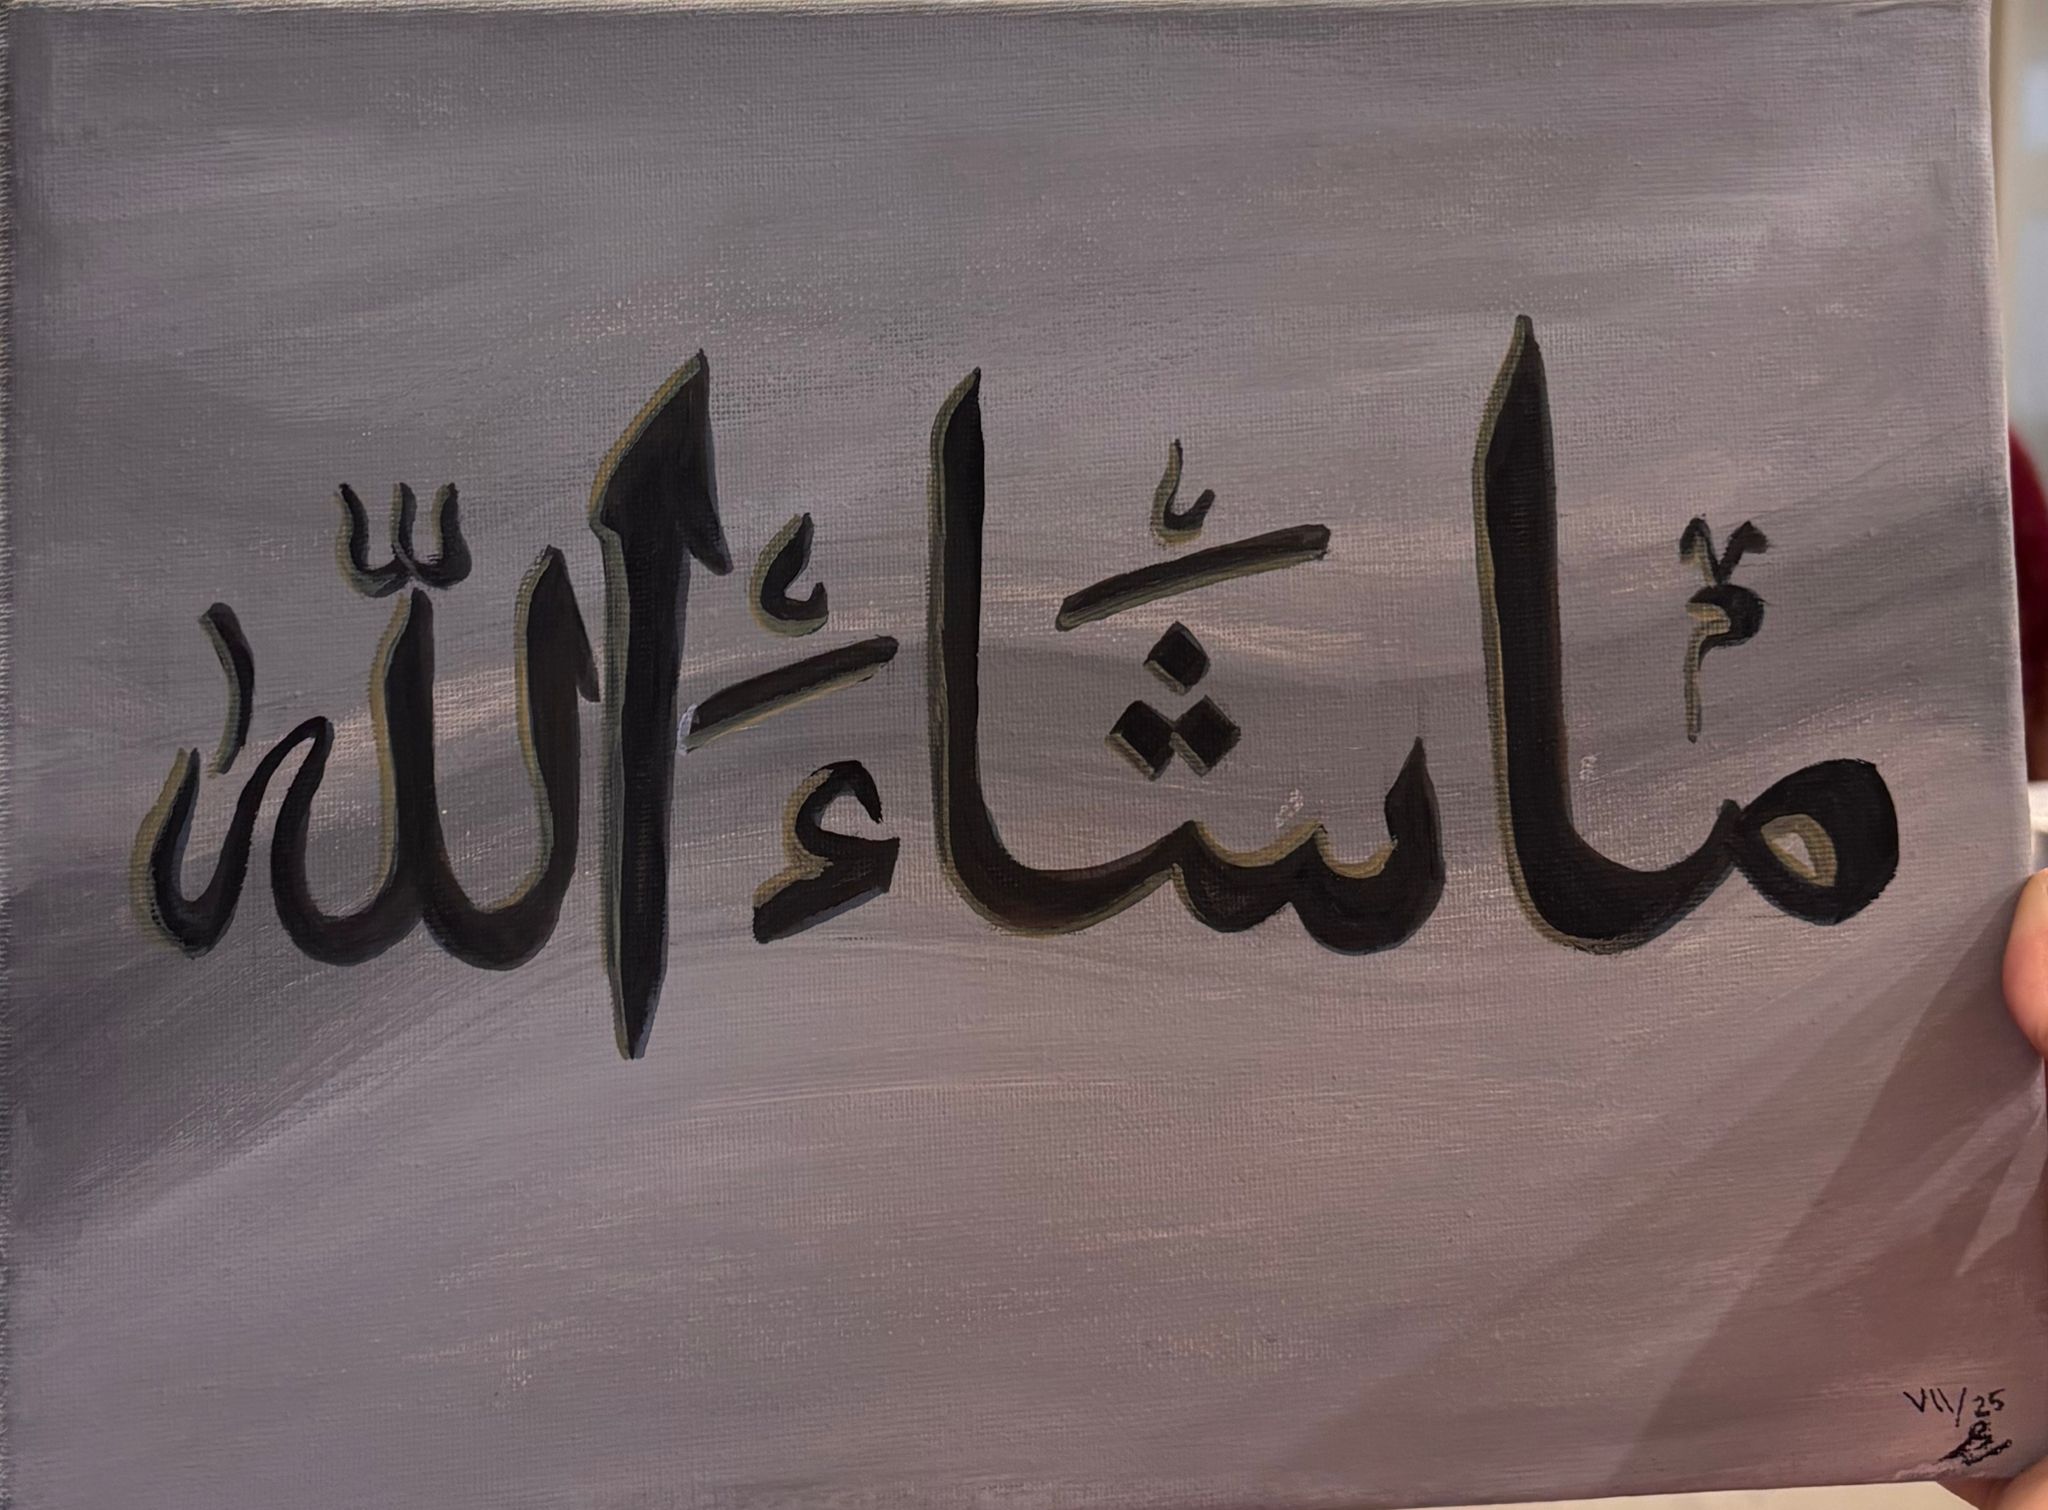 مَا شَاءَ اللّٰهُ
VII/25